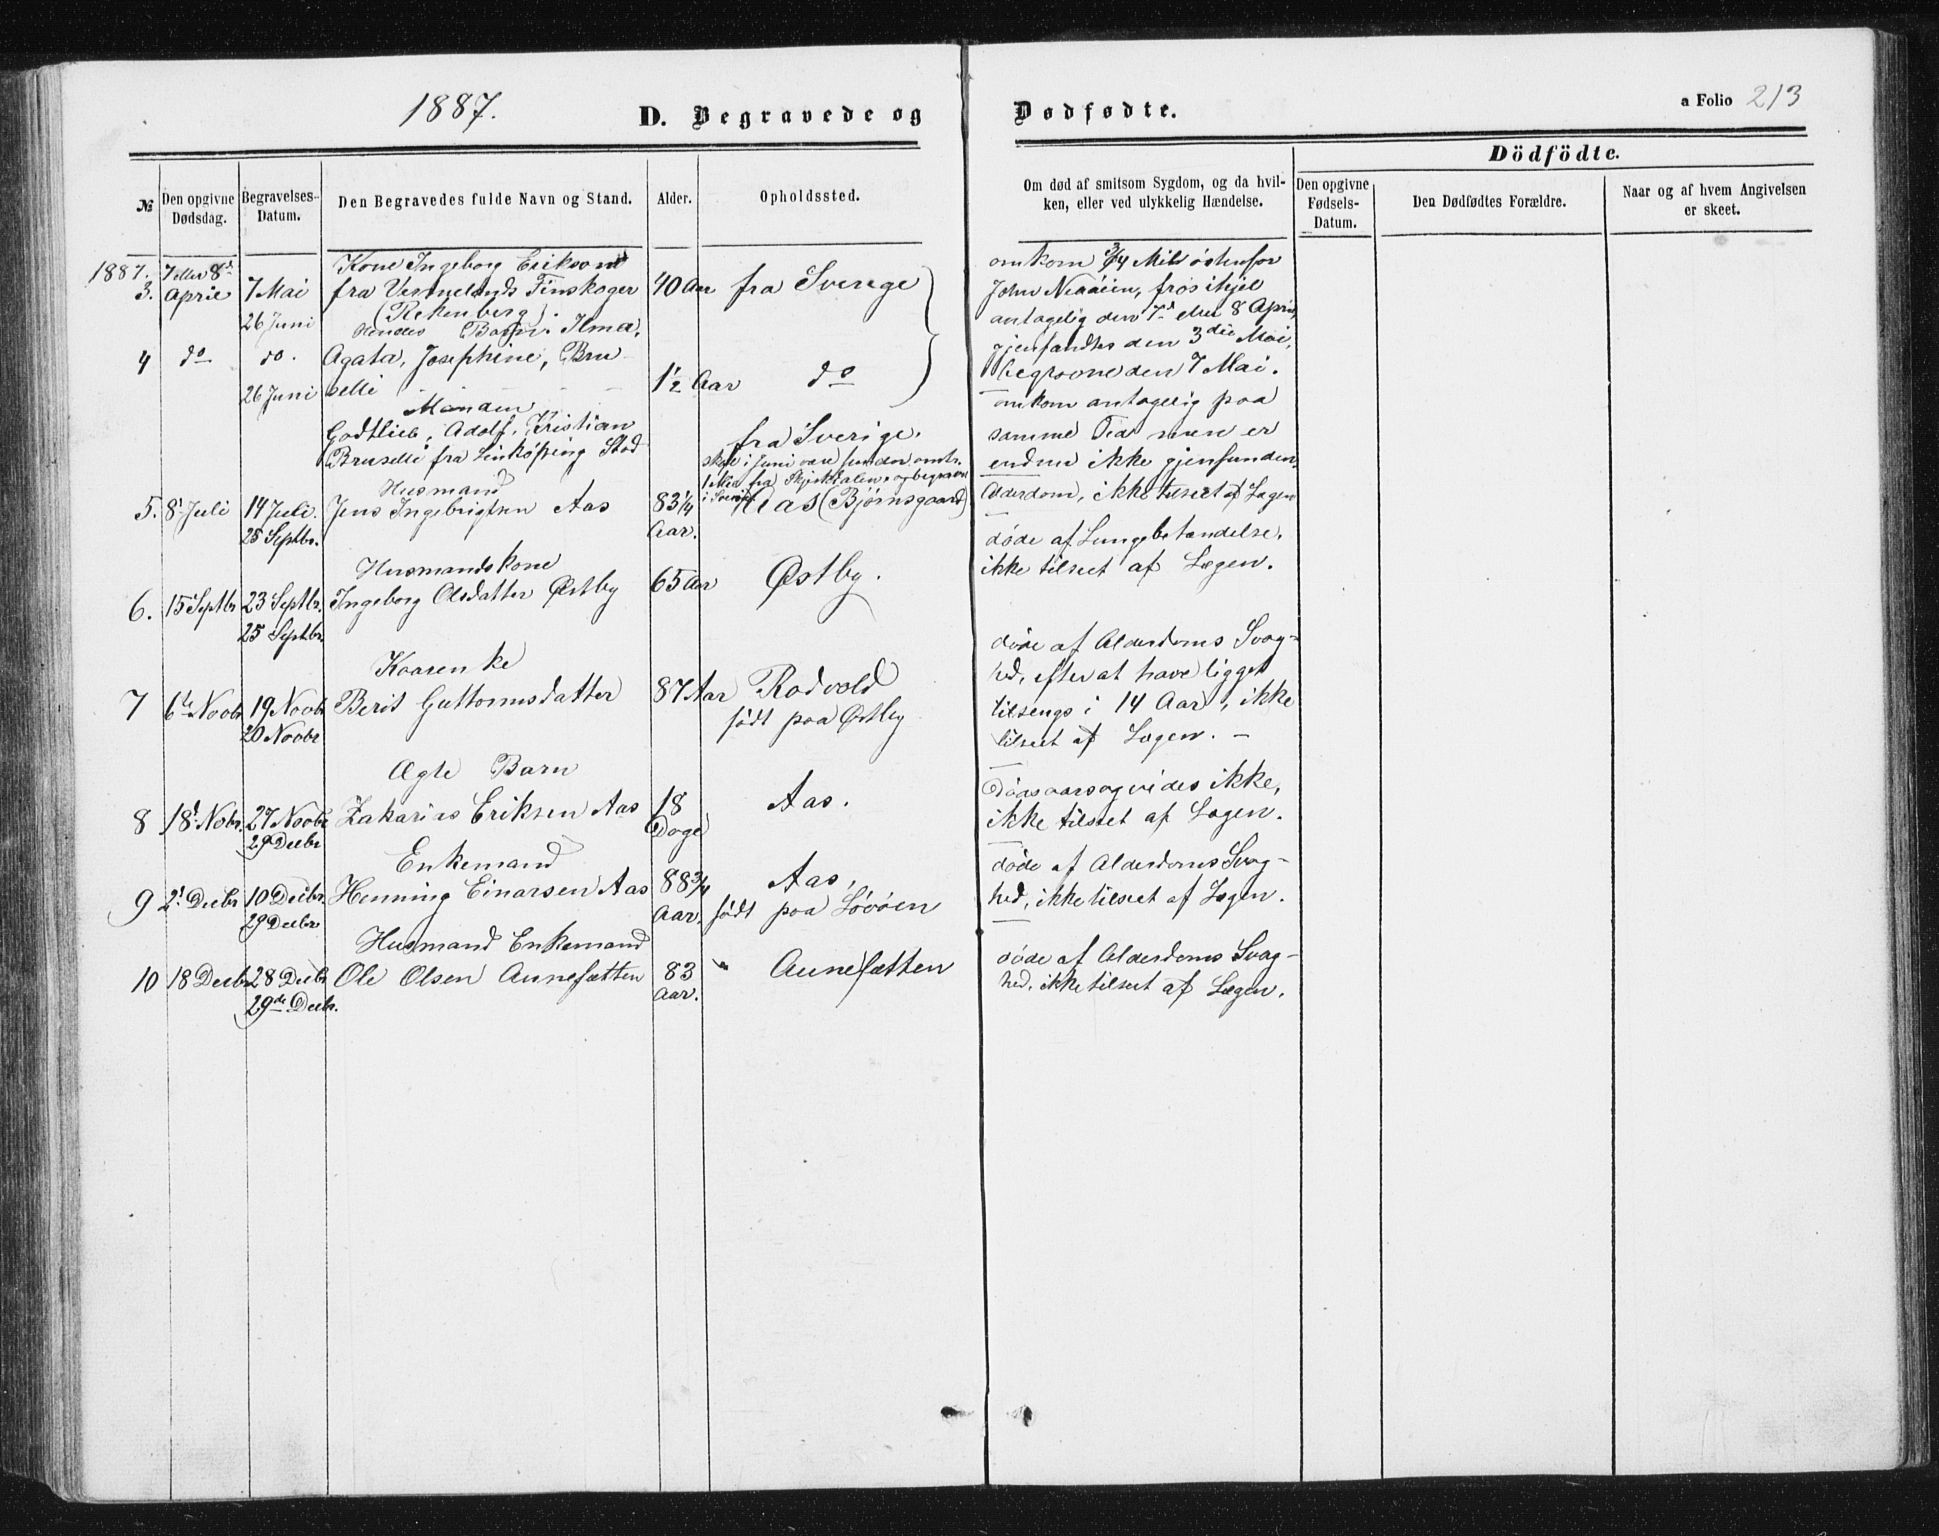 1887.
D. Begravede og Dødfødte.
a Folio 213
Dödfödte.
№
Den opgivne Dødsdag.
Begravelses-Datum.
Den Begravedes fulde Navn og Stand.
Alder.
Opholdssted.
Om død af smitsom Sygdom, og da hvil-
ken, eller ved ulykkelig Hændelse.
Den opgivne Fødsels-Datum.
Den Dødfødtes Forældre.
Naar og af hvem Angivelsen er skeet.
1887.
3.
7 eller 8d
April
7 Mai
26 Juni
Kone Ingeborg Erikson
fra Vermelands Finskoger
Hendes Barn: Ilma,
40 Aar
fra Sverige
omkom 3/4 Mil østenfor
John Neaaien, frøs ihjel
antagelig den 7d eller 8 April,
gjenfandtes den 3die Mai,
begravne den 7 Mai.
4
do
do.
26 Juni
Agata, Josephine, Bru
selli
1½ Aar
do
omkom antagelig paa
samme Tid men er
endnu ikke gjenfunden.
Manden
Godtlieb, Adolf, Kristian
Bruselli fra Linköping Stad
fra Sverige.
5.
8d Juli
14 Juli.
25 Septbr.
Husmand
Jens Ingebrigtsen Aas
83 1/4
Aar.
Aas (Bjørnsgaard)
Alderdom, ikke tilseet af Lægen
6.
15 Septbr
23 Septbr.
25 Septbr.
Husmandskone
Ingeborg Olsdatter Østby
65 Aar
Østby.
døde af Lungebetændelse,
ikke tilseet af Lægen.
7
6te Novbr
19 Novbr
20 Novbr
Berit Guttormsdatter
87 Aar
Rodvold
født paa Østby
døde af Alderdoms Svag-
hed, efter at have ligget
tilsengs i 14 Aar, ikke
tilseet af Lægen. –
8
18d Nobr.
27 Novbr
29 Decbr
Ægte Barn
Zakarias Eriksen Aas
18
Dage
Aas.
Dødsaarsag vides ikke,
ikke tilseet af Lægen.
9
2d Decbr
10 Decbr.
29 Decbr
Enkemand
Henning Einarsen Aas
88 3/4
Aar.
Aas,
født paa Løvøen
døde af Alderdoms Svag-
hed, ikke tilseet af Lægen.
10
18 Decbr
28 Decbr
29de Decbr.
Husmand Enkemand
Ole Olsen Aunefætten
83
Aar.
Aunefætten
døde af Alderdoms Svag-
hed, ikke tilseet af Lægen.